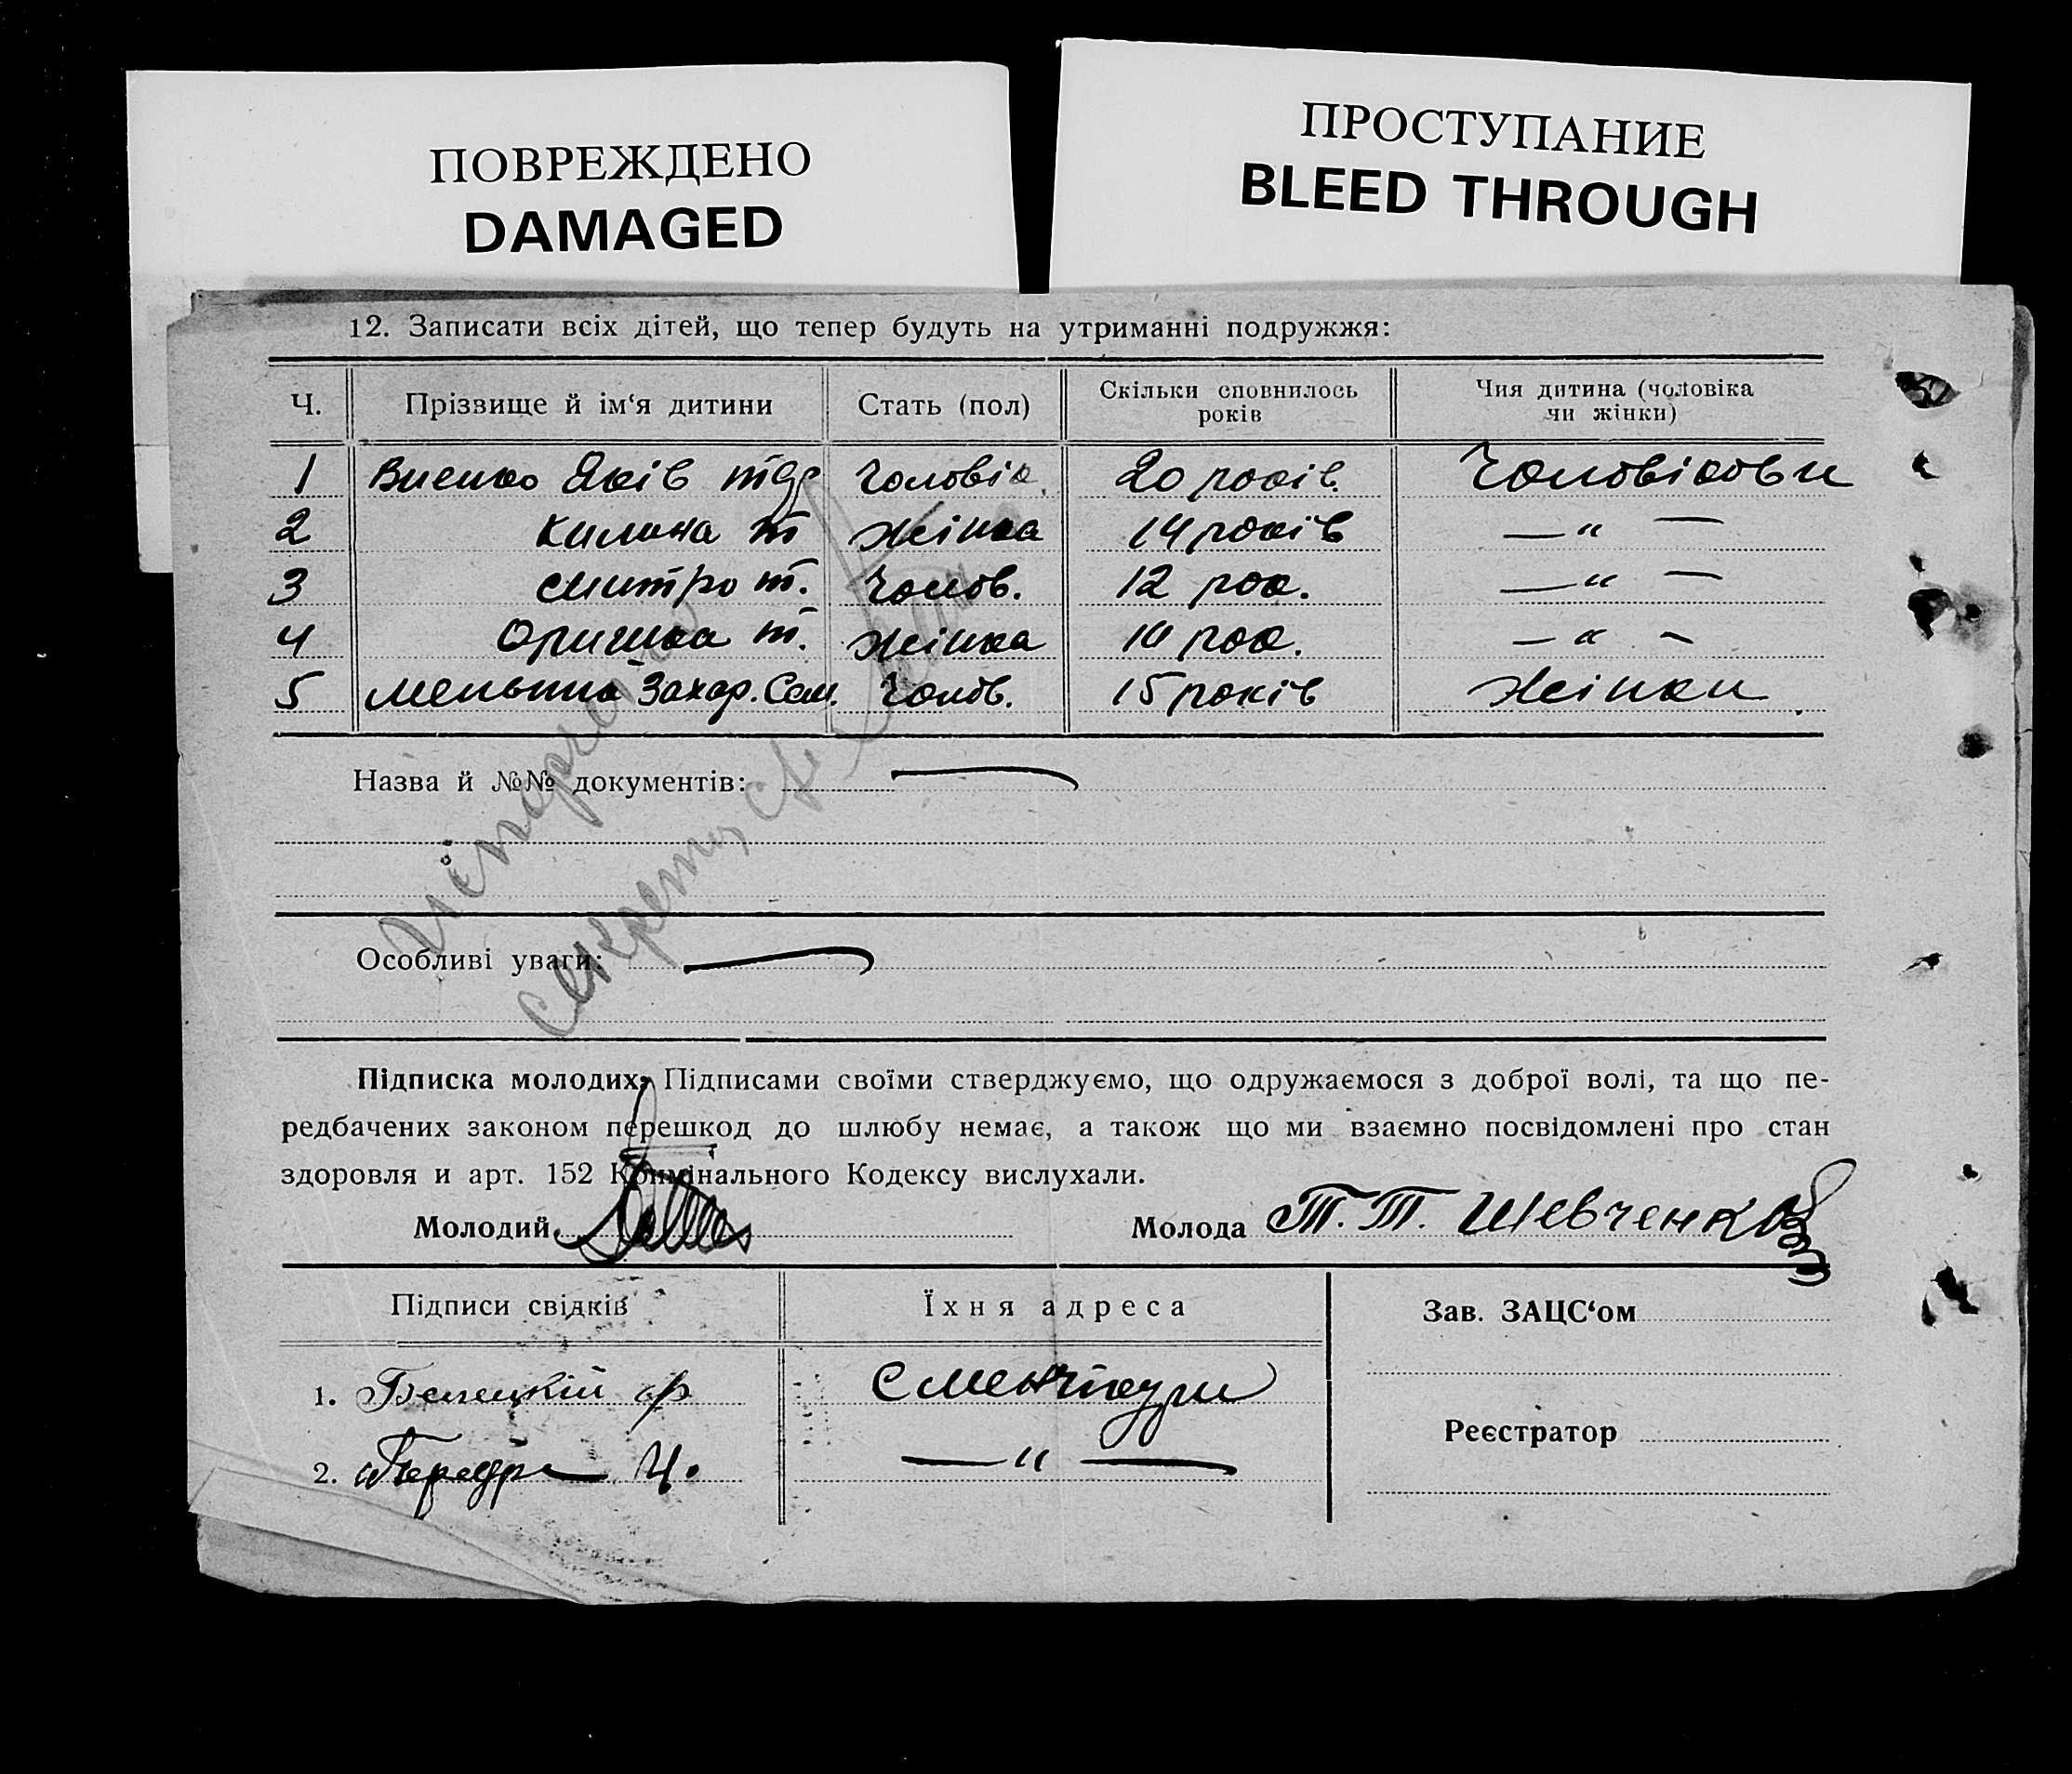 ПОВРЕЖДЕНО
DAMAGED
ПРОСТУПАНИЕ
BLEED THROUGH
12. Записати всіх дітей, що тепер будуть на утриманні подружжя:
Ч. Прізвище й ім‘я дитини Стать (пол) Скільки сповнилось років Чия дитина (чоловіка чи жінки)
1 Яків Чоловік 20 років. Чоловікови
2 Килина т Жінка 14 років — " —
3 т. Чолов. 12 рок. — " —
4 Оришка т. Жінка 10 рок. — " —
5 Захар. Сем. Чолов. 15 років Жінки
Назва й №№ документів:
Особливі уваги:
Секрет
Підписка молодих. Підписами своїми стверджуємо, що одружаємося з доброї волі, та що пе-
редбачених законом перешкод до шлюбу немає, а також що ми взаємно посвідомлені про стан
здоровля и арт. 152 Кримінального Кодексу вислухали.
Молодий Молода Т. Т. Шевченко
Підписи свідків Їхня адреса Зав. ЗАЦС‘ом
1. с
Реєстратор
2. — " —